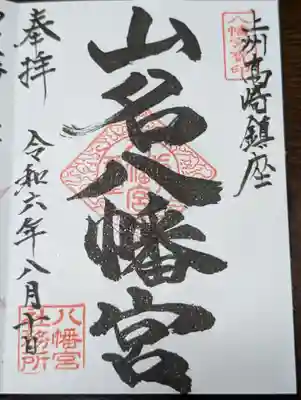 上州高崎鎮座
八幡宮
山名八幡宮
奉拝
令和六年八月十日
八幡宮
社務所